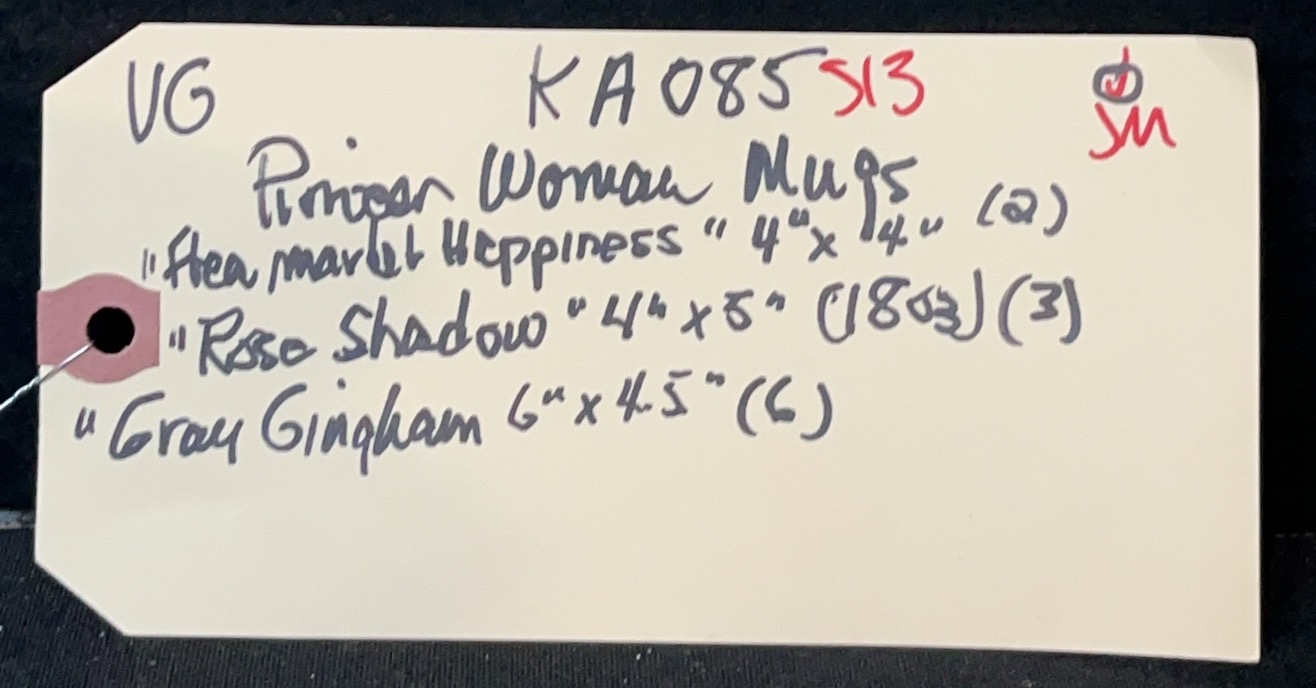 VG KA085 S13 SM
Pioneer Woman Mugs
"flea market Happiness" 4" x 4" (2)
"Rose Shadow" 4" x 5" (18oz) (3)
"Gray Gingham 6" x 4.5" (6)